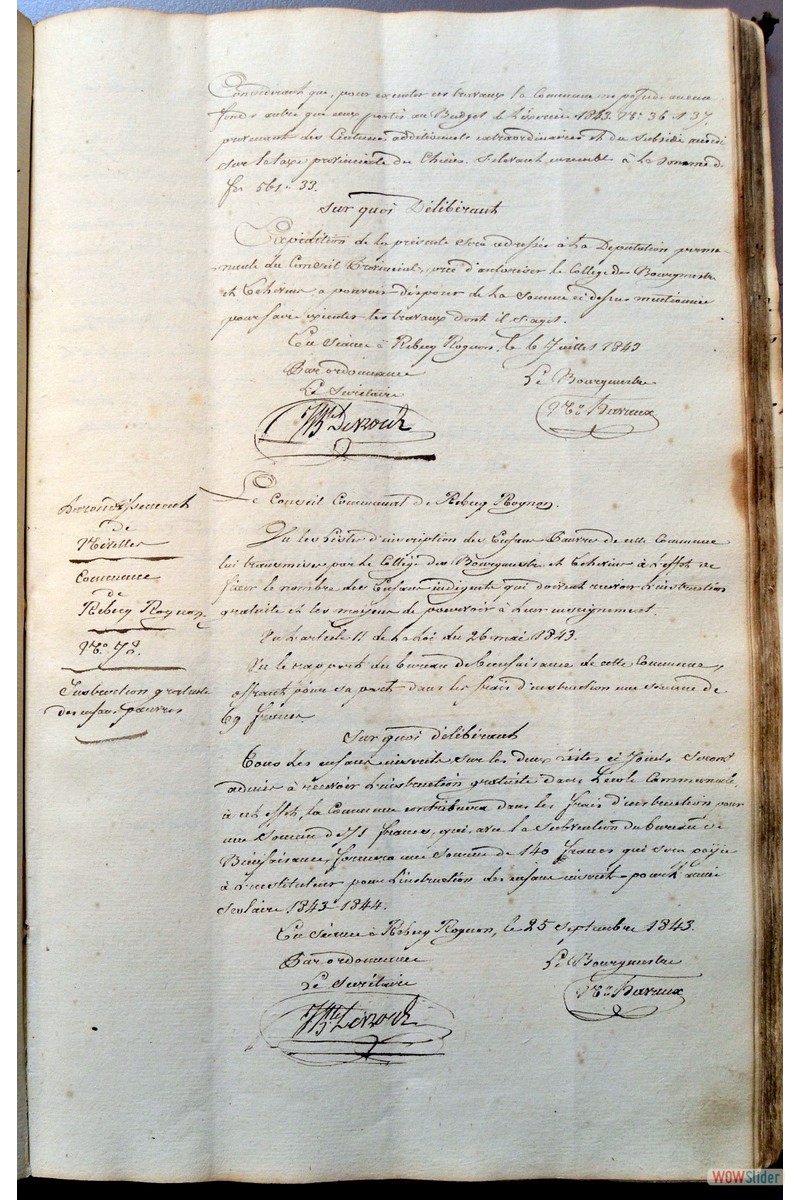 Considérant que, pour executer ces travaux la Commune ne possède aucun
fonds autre que ceux portés au Budget de l'exercice 1843 Nos 36 & 37.
provenant des Centimes additionnels extraordinaires et du subside
sur la taxe provinciale des Chiens s'élevant ensemble à la somme de
frs 561 " 33.
Sur quoi Délibérant
Expédition de la présente sera adressée à la Députation perma-
nente du Conseil Provincial, priée d'autoriser le Collège des Bourgmestre
et Echevins, a pouvoir disposer de la somme ci dessus mentionnée
pour faire exécuter les travaux dont il s'agit.
En Séance à Rebecq Rognon, le 6 Juillet 1843
Par ordonnance
Le Bourgmestre
Le Secrétaire
Arrondissement
de
Nivelles
Commune
de
Rebecq Rognon
No 78.
Instruction gratuite
des enfans pauvres
Le Conseil Communal de Rebecq Rognon.
Vu les Listes d'inscription des Enfans Pauvres de cette Commune
lui transmises par le Collège des Bourgmestre et Echevins à l'effet de
fixer le nombre des Enfans indigents qui doivent recevoir l'instruction
gratuite et les moyens de pourvoir à leur enseignement.
Vu l'article 11 de la Loi du 26 mai 1843.
Vu le rapport du bureau de bienfaisance de cette Commune,
offrant pour sa part dans les frais d'instruction une somme de
69 francs.
Sur quoi délibérant
Tous les enfans inscrits sur les deux listes ci Jointes seront
admis à recevoir l'instruction gratuite dans l'école Communale,
à cet effet, la Commune contribuera dans les frais d'instruction pour
une Somme de 71 francs, qui, avec la Subvention du bureau de
Bienfaisance, formera une somme de 140 francs qui sera payée
à l'instituteur pour l'instruction des enfans inscrits pour l'année
Scolaire 1843-1844.
En séance à Rebecq Rognon, le 25 septembre 1843.
Par ordonnance
Le Bourgmestre
Le Secrétaire
WOWSlider